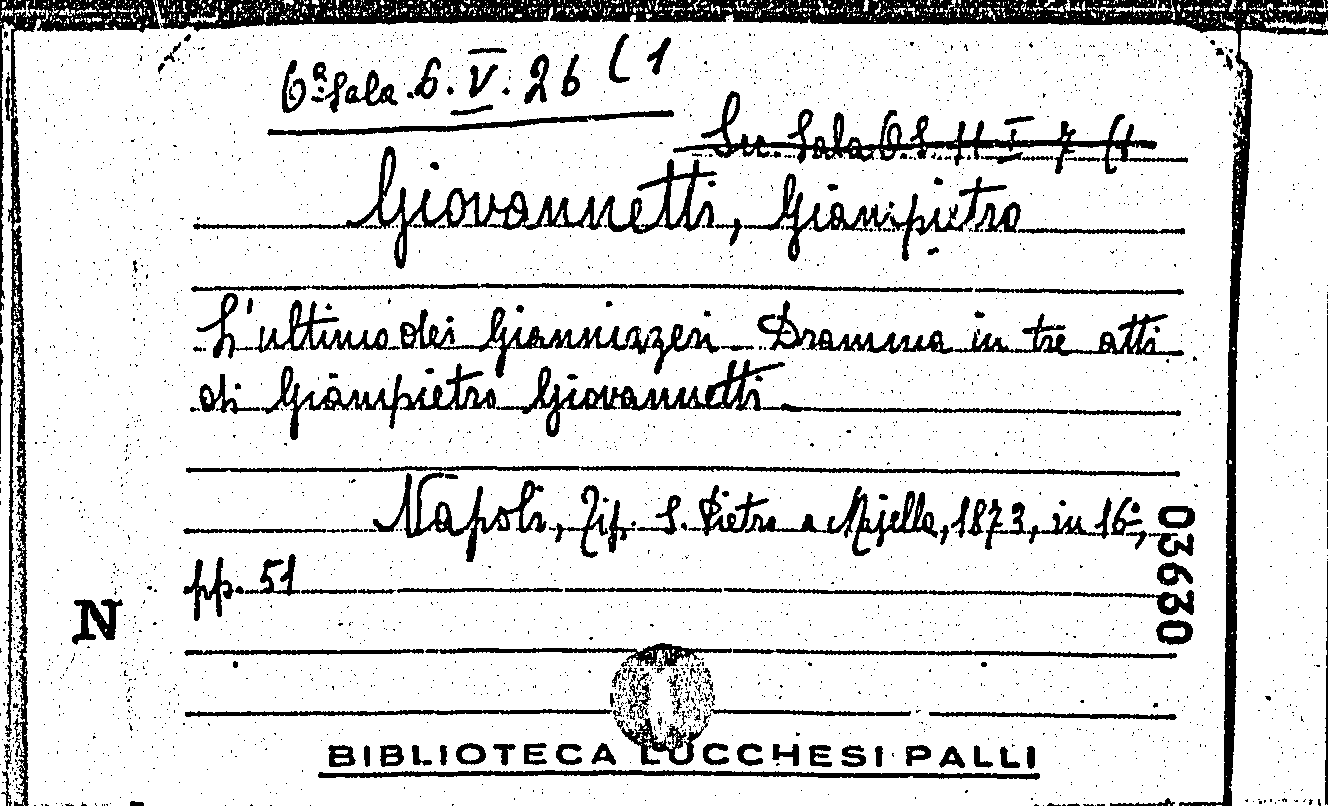 6ª Sala. 6. V. 26 (1
Sala 6. S. 11 I 7 (1
Giovannetti, Giampietro
L'ultimo dei Giannizzeri. Dramma in tre atti
di Giampietro Giovannetti.
Napoli, Tip. S. Pietro a Majella, 1873, in 16º,
pp. 51
03630
N
BIBLIOTECA LUCCHESI PALLI